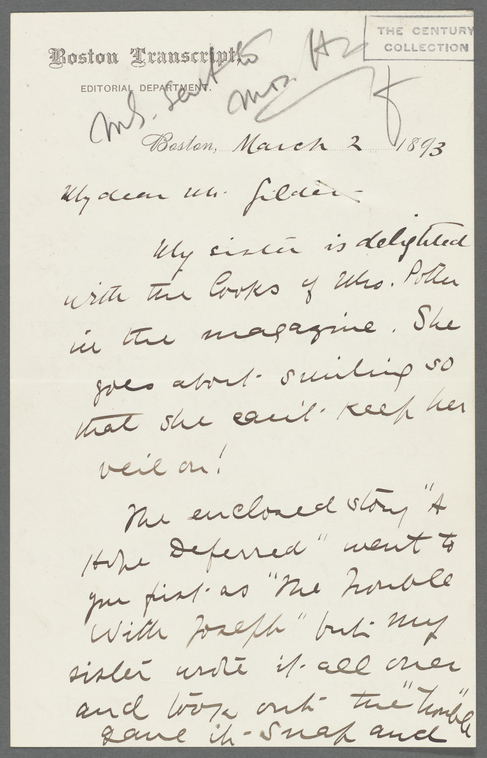 THE CENTURY
COLLECTION
Boston Transcript
EDITORIAL DEPARTMENT.
MS. sent to
Mrs.
Boston, March 2 1893
My dear Mr. Gilder
My sister is delighted
with the looks of Mrs. Potter
in the magazine. She
goes about smiling so
that she can't keep her
veil on!
The enclosed story "A
Hope Deferred" went to
you first as "The Trouble
With Joseph" but my
sister wrote it all over
and took out the "trouble"
gave it snap and